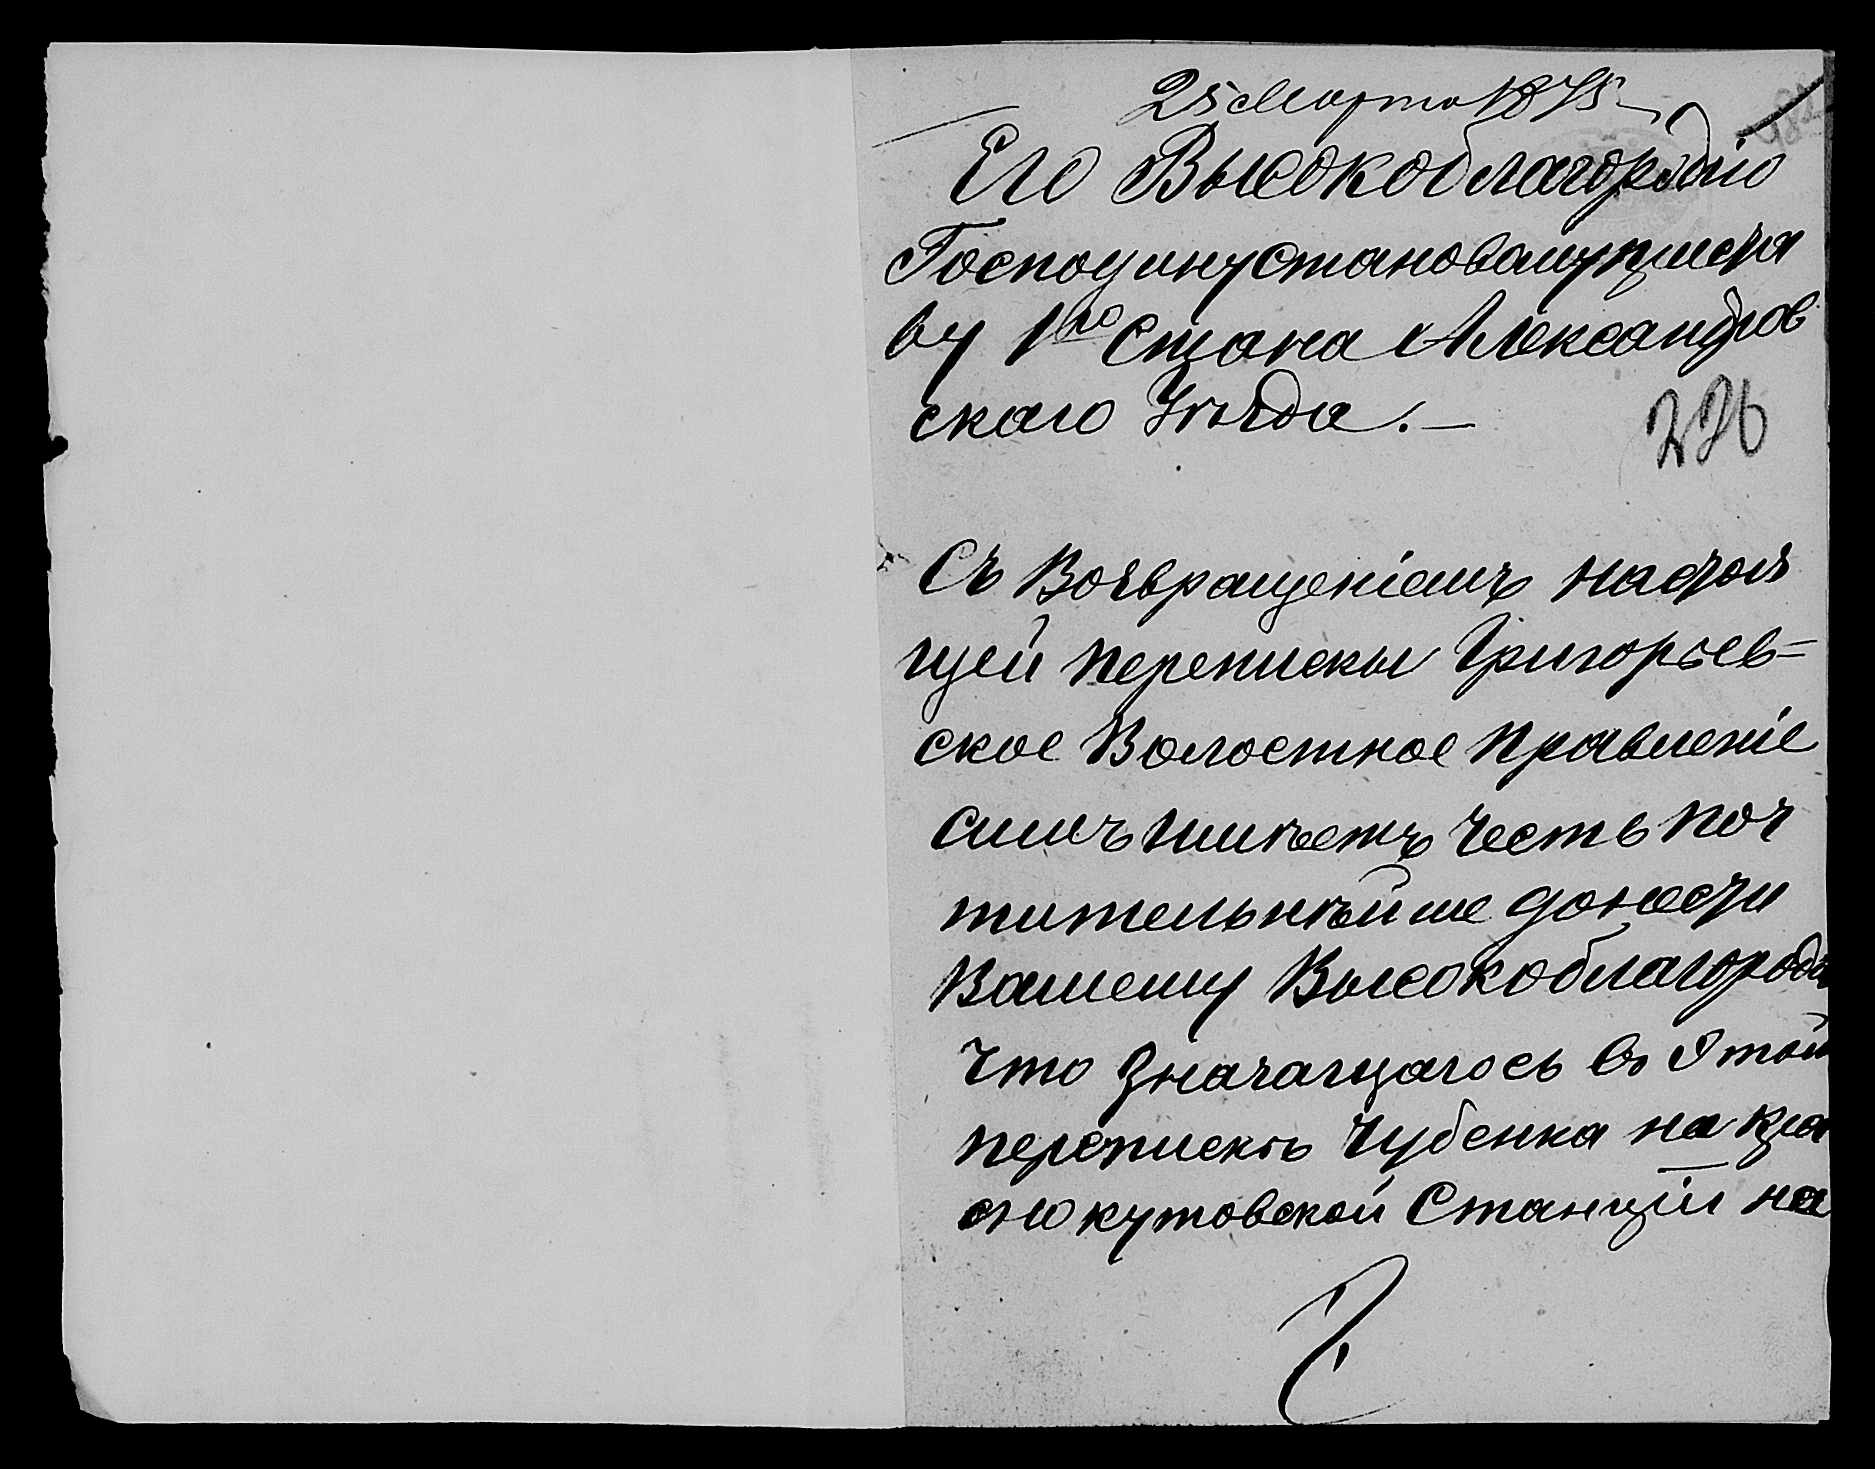 25 Марта 1875
Его Высокоблагородію
Господину Становому приста
ву 1го Стана Александров
скаго Уѣзда. —
226
Съ Возвращеніемъ настоя
щей переписки Григорьев=
ское Волостное Правленіе
симъ имѣетъ честь поч
тительнѣйше донести
Вашему Высокоблагороді
что значащагося въ этой
перепискѣ Чубенка на Кра
снокутовской Станціи не